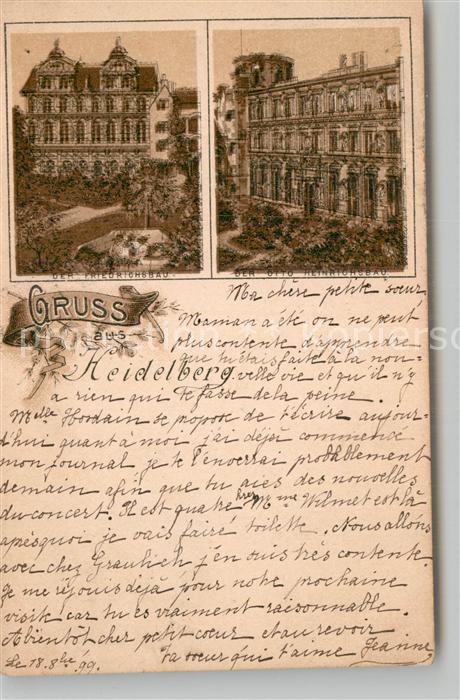 DER FRIEDRICHSBAU.
DER OTTO HEINRICHSBAU.
GRUSS
aus
Heidelberg
Ma chère petite soeur,
Maman a été on ne peut
plus contente d'apprendre
que tu étais faite à la nou-
velle vie et qu'il n'y
a rien qui te fasse de la peine.
Melle Hordain se propose de t'écrire aujour-
d'hui quant à moi j'ai déjà commencé
mon journal je te l'enverrai probablement
demain afin que tu aies des nouvelles
du concert. Il est quatre hres Mme Wilmet est là
après quoi je vais faire toilette. Nous allons
avec chez Graulich j'en suis très contente.
Je me réjouis déjà pour notre prochaine
visite car tu es vraiment raisonnable.
A bientôt cher petit coeur et au revoir
ta soeur qui t'aime Jeanne
Le 18. 8bre 99.